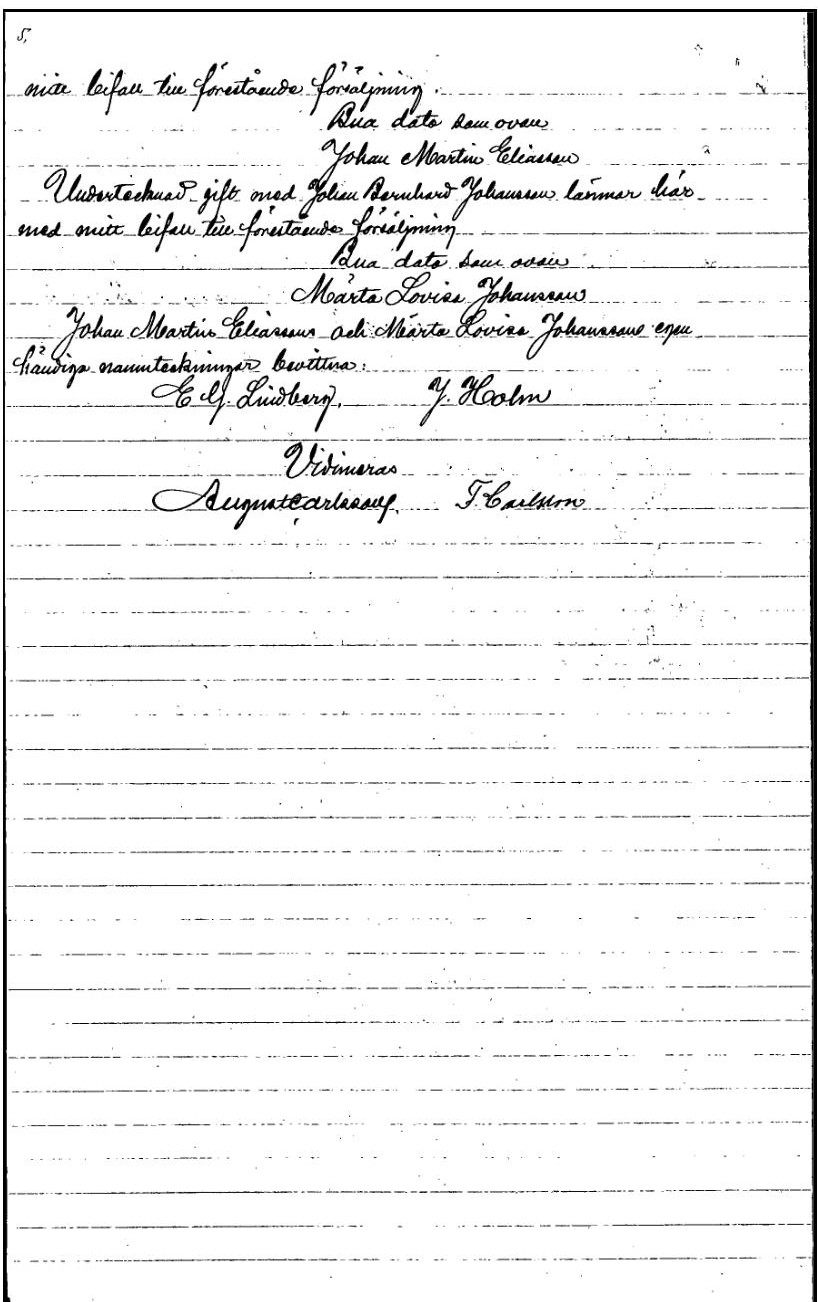 5,
mitt bifall till förestående försäljning.
Bua dato som ovan
Johan Martin Eliasson
Undertecknad gift med Johan Bernhard Johansson lämnar här
med mitt bifall till förestående försäljning
Bua dato som ovan
Märta Lovisa Johansson
Johan Martin Eliassons och Märta Lovisa Johanssons egen
händiga namnteckningar bevittna:
E G. Lindberg. J. Holm
Vidimeras
August Carlsson T Carlsson